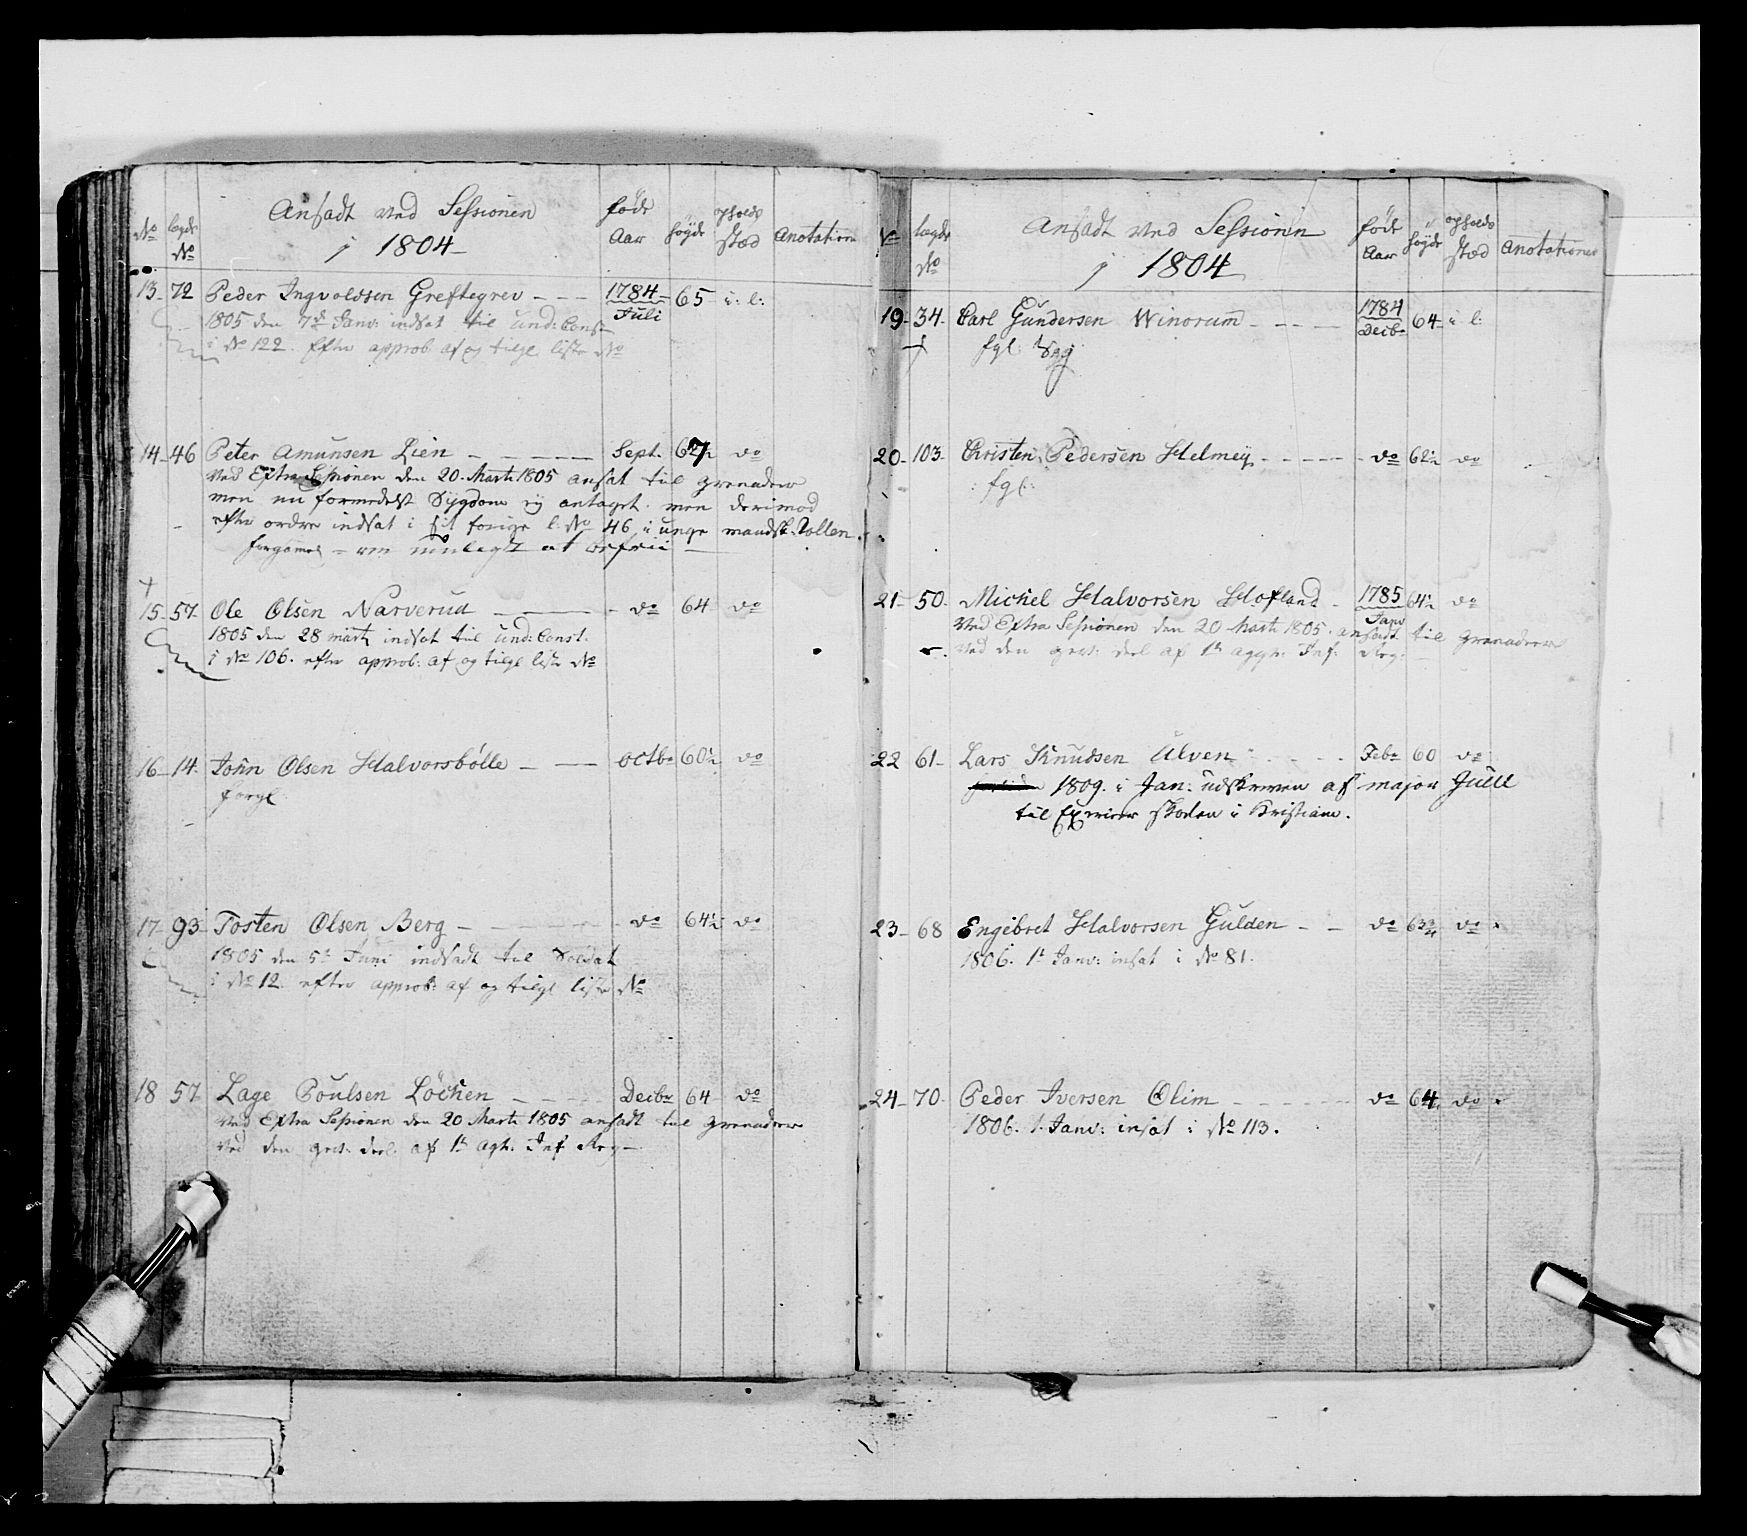 No lægds No Ansadt ved Sessionen i 1804 føde Aar høyde opholds stæd Anotation
13 72 Peder Ingvoldsen Greftegrev 1784 Juli 65 i: l:
1805 den 7de Janv: indsat til und: Const.
i No 122. efter approb: af og tilge liste No
14 46 Peter Amunsen Lien Sept. do
ved Extra Sessionen den 20 Marti 1805 ansat til grenadeer
men nu formedelst Sygdom ej antaget. men derimod
efter ordre indsat i sit forige l. No 46 i unge mandsk: Rollen.
15 57 Ole Olsen Narverud do 64 do
1805 den 28 marti indsat til und: Const:
i No 106. efter approb: af og tilge liste No
16 14 John Olsen Halvorsbølle Octbr 60½ do
forgl.
17 93 Tosten Olsen Berg do 64½ do
1805 den 5t Juni indsadt til Soldat
i No 12. efter approb: af og tilge liste No
18 57 Lage Poulsen Løchen Decbr 64 do
ved Extra Sessionen den 20 Marti 1805 ansadt til grenadeer
ved den gevt: deel af 1t Agh. Inf Reg
No lægds No Ansadt ved Sessionen i 1804 føde Aar høyde opholds stæd Anotationer
19 34 Carl Gundersen Winorum 1784 Decbr 64 i l:
fgl:
20 103 Christen Pedersen Helmey do 62½ do
fgl:
21 50 Michel Halvorsen Hofland 1785 Janv 64½ do
ved Extra Sessionen den 20 Marti 1805. ansadt til grenadeer
ved den gevt: deel af 1t aggh: Inf: Reg:
22 61 Lars Knudsen Ulven Febr 60 do
1809. i Jan: udskreven af major Juell
til Exerceer skolen i Kristiani.
23 68 Engebret Halvorsen Gulden do 63¾ do
1806. 1t Janv: insat i No 81.
24 70 Peder Iversen Olim do 64 do
1806. 1. Janv: insat i No 113.